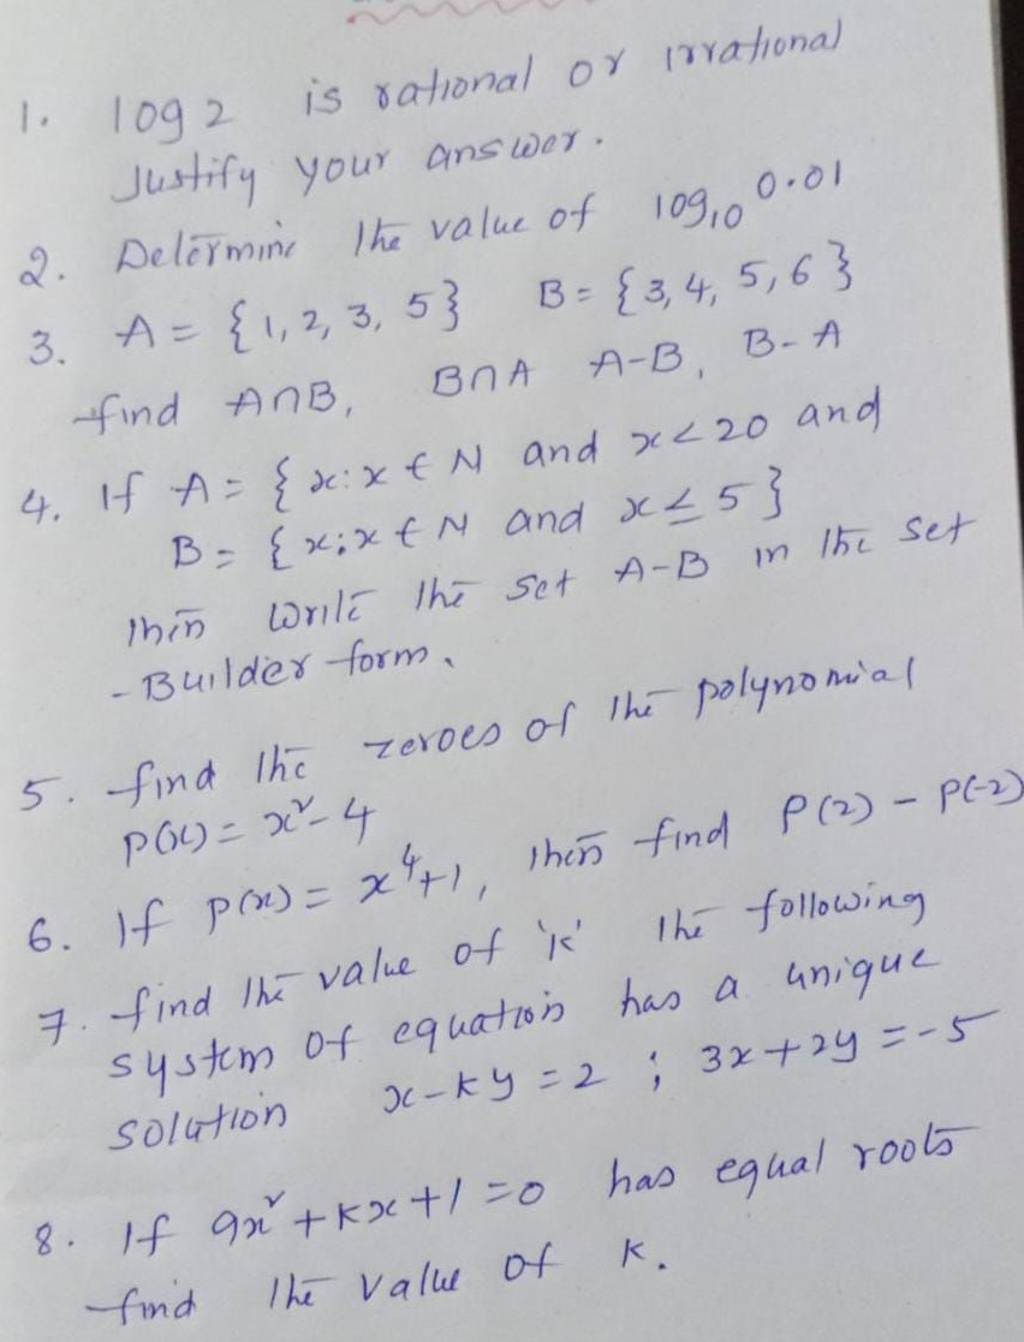 1. log 2 is rational or irrational
Justify your answer.
2. Determine the value of log₁₀ 0.01
3. A = {1, 2, 3, 5} B = {3, 4, 5, 6}
find A∩B, B∩A A-B, B-A
4. If A = {x:x ∈ N and x < 20 and
B = {x:x ∈ N and x ≤ 5}
then write the set A-B in the set
- Builder form.
5. find the zeroes of the polynomial
p(x) = x² - 4
6. If p(x) = x⁴+1, then find P(2) - P(-2)
7. find the value of 'k' the following
system of equation has a unique
solution x - ky = 2 ; 3x + 2y = -5
8. If 9x² + kx + 1 = 0 has equal roots
find the value of k.